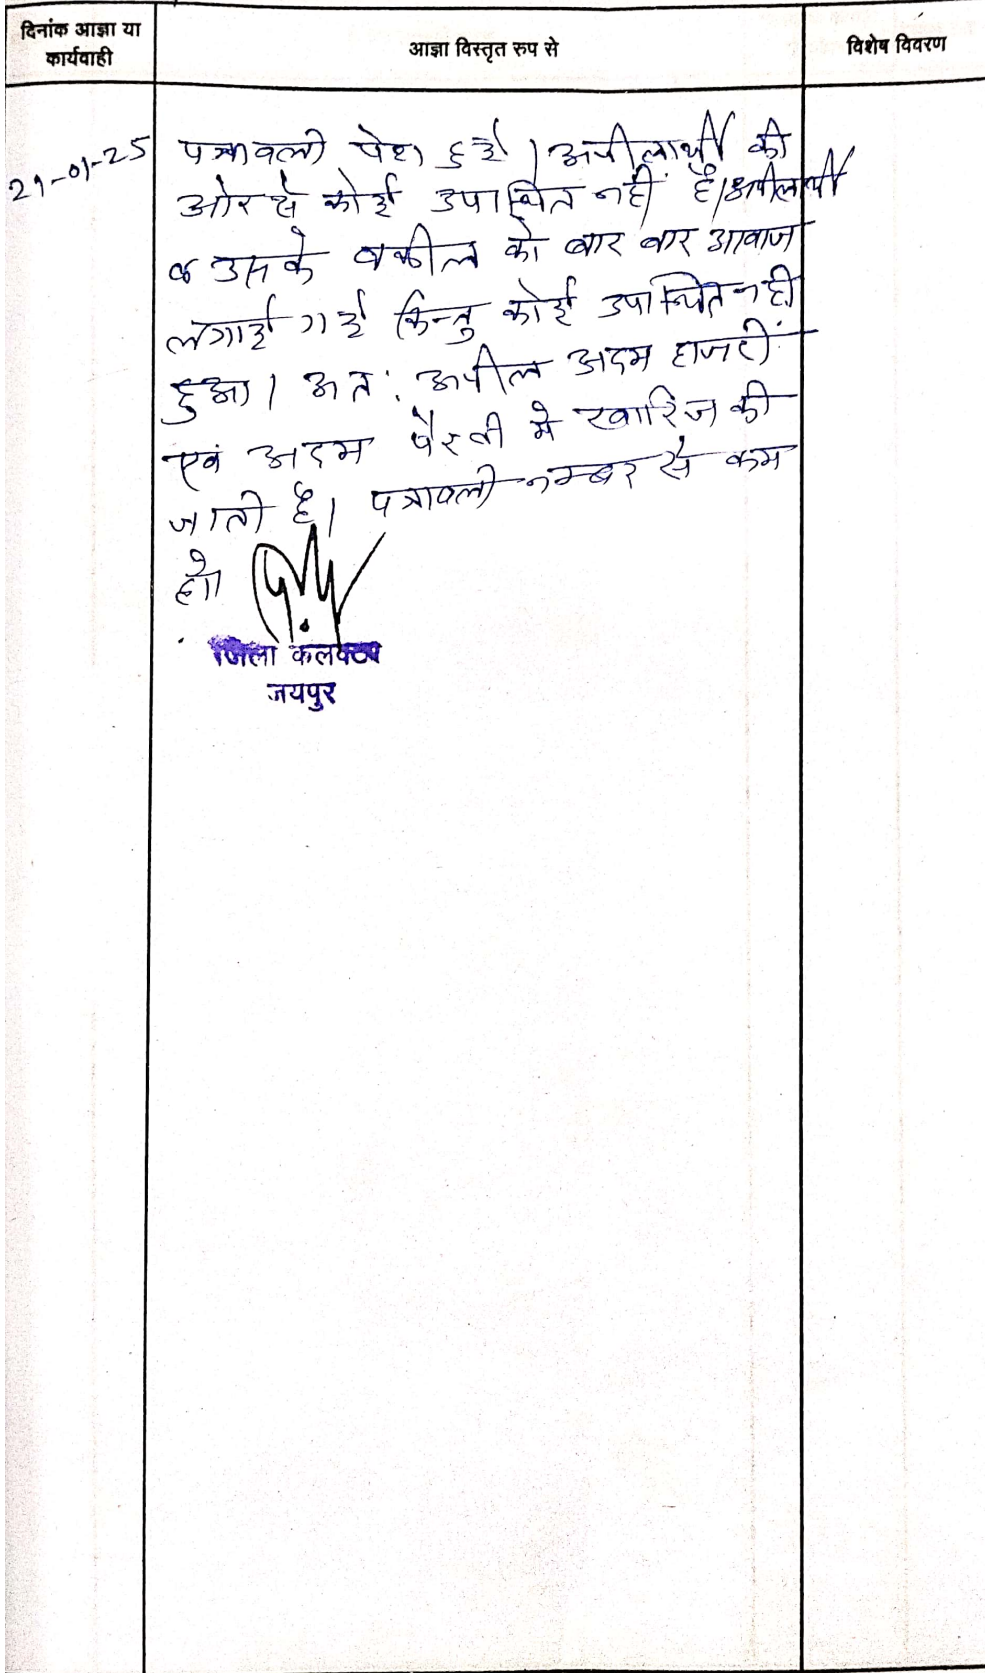 दिनांक आज्ञा या
कार्यवाही
आज्ञा विस्तृत रुप से
विशेष विवरण
21-01-25
पत्रावली पेश हुई। अपीलार्थी की
ओर से कोई उपस्थित नहीं है। अपीलार्थी
व उसके वकील को बार बार आवाज
लगाई गई किन्तु कोई उपस्थित नहीं
हुआ। अतः अपील अदम हाजरी
एवं अदम पैरवी मे खारिज की
जाती है। पत्रावली नम्बर से कम
हो
जिला कलक्टर
जयपुर